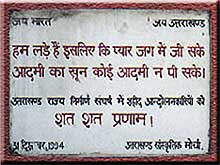 जय भारत जय उत्तराखण्ड
हम लड़े हैं इसलिए कि प्यार जग में जी सके
आदमी का खून कोई आदमी न पी सके।
उत्तराखण्ड राज्य निर्माण संघर्ष में शहीद आन्दोलनकारियों को
शत शत प्रणाम!
31 दिसम्बर, 1994 उत्तराखण्ड सांस्कृतिक मोर्चा